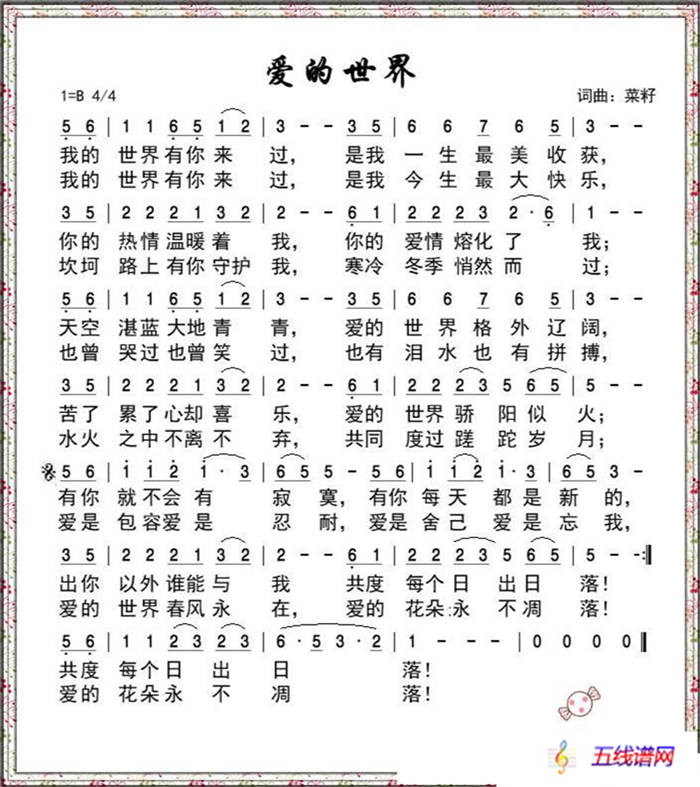 爱的世界
1=B 4/4 词曲：菜籽
5 6 | 1 1 6 5 1 2 | 3 - - 3 5 | 6 6 7 6 5 | 3 - -
我的 世界有你来 过， 是我 一生最美收获，
我的 世界有你来 过， 是我 今生最大快乐，
3 5 | 2 2 2 1 3 2 | 2 - - 6 1 | 2 2 2 3 2 · 6 | 1 - -
你的 热情温暖着 我， 你的 爱情熔化了 我；
坎坷 路上有你守护 我， 寒冷 冬季悄然而 过；
5 6 | 1 1 6 5 1 2 | 3 - - 3 5 | 6 6 7 6 5 | 3 - -
天空 湛蓝大地青 青， 爱的 世界格外辽阔，
也曾 哭过也曾笑 过， 也有 泪水也有拼搏，
3 5 | 2 2 2 1 3 2 | 2 - - 6 1 | 2 2 2 3 5 6 5 | 1 - -
苦了 累了心却喜 乐， 爱的 世界骄阳似 火；
水火 之中不离不 弃， 共同 度过蹉跎岁 月；
5 6 | 1 1 2 1 · 3 | 6 5 5 - 5 6 | 1 1 2 1 · 3 | 6 5 3 -
有你 就不会有 寂寞， 有你 每天都是新的，
爱是 包容爱是 忍耐， 爱是 舍己爱是忘我，
3 5 | 2 2 2 1 3 2 | 2 - - 6 1 | 2 2 2 3 5 6 5 | 2 - - :|
出你 以外谁能与 我 共度 每个日出日 落！
爱的 世界春风永 在， 爱的 花朵永不凋 落！
5 6 | 1 1 2 3 2 3 | 6 · 5 3 · 2 | 1 - - - | 0 0 0 0 |
共度 每个日出 日 落！
爱的 花朵永不 凋 落！
五线谱网